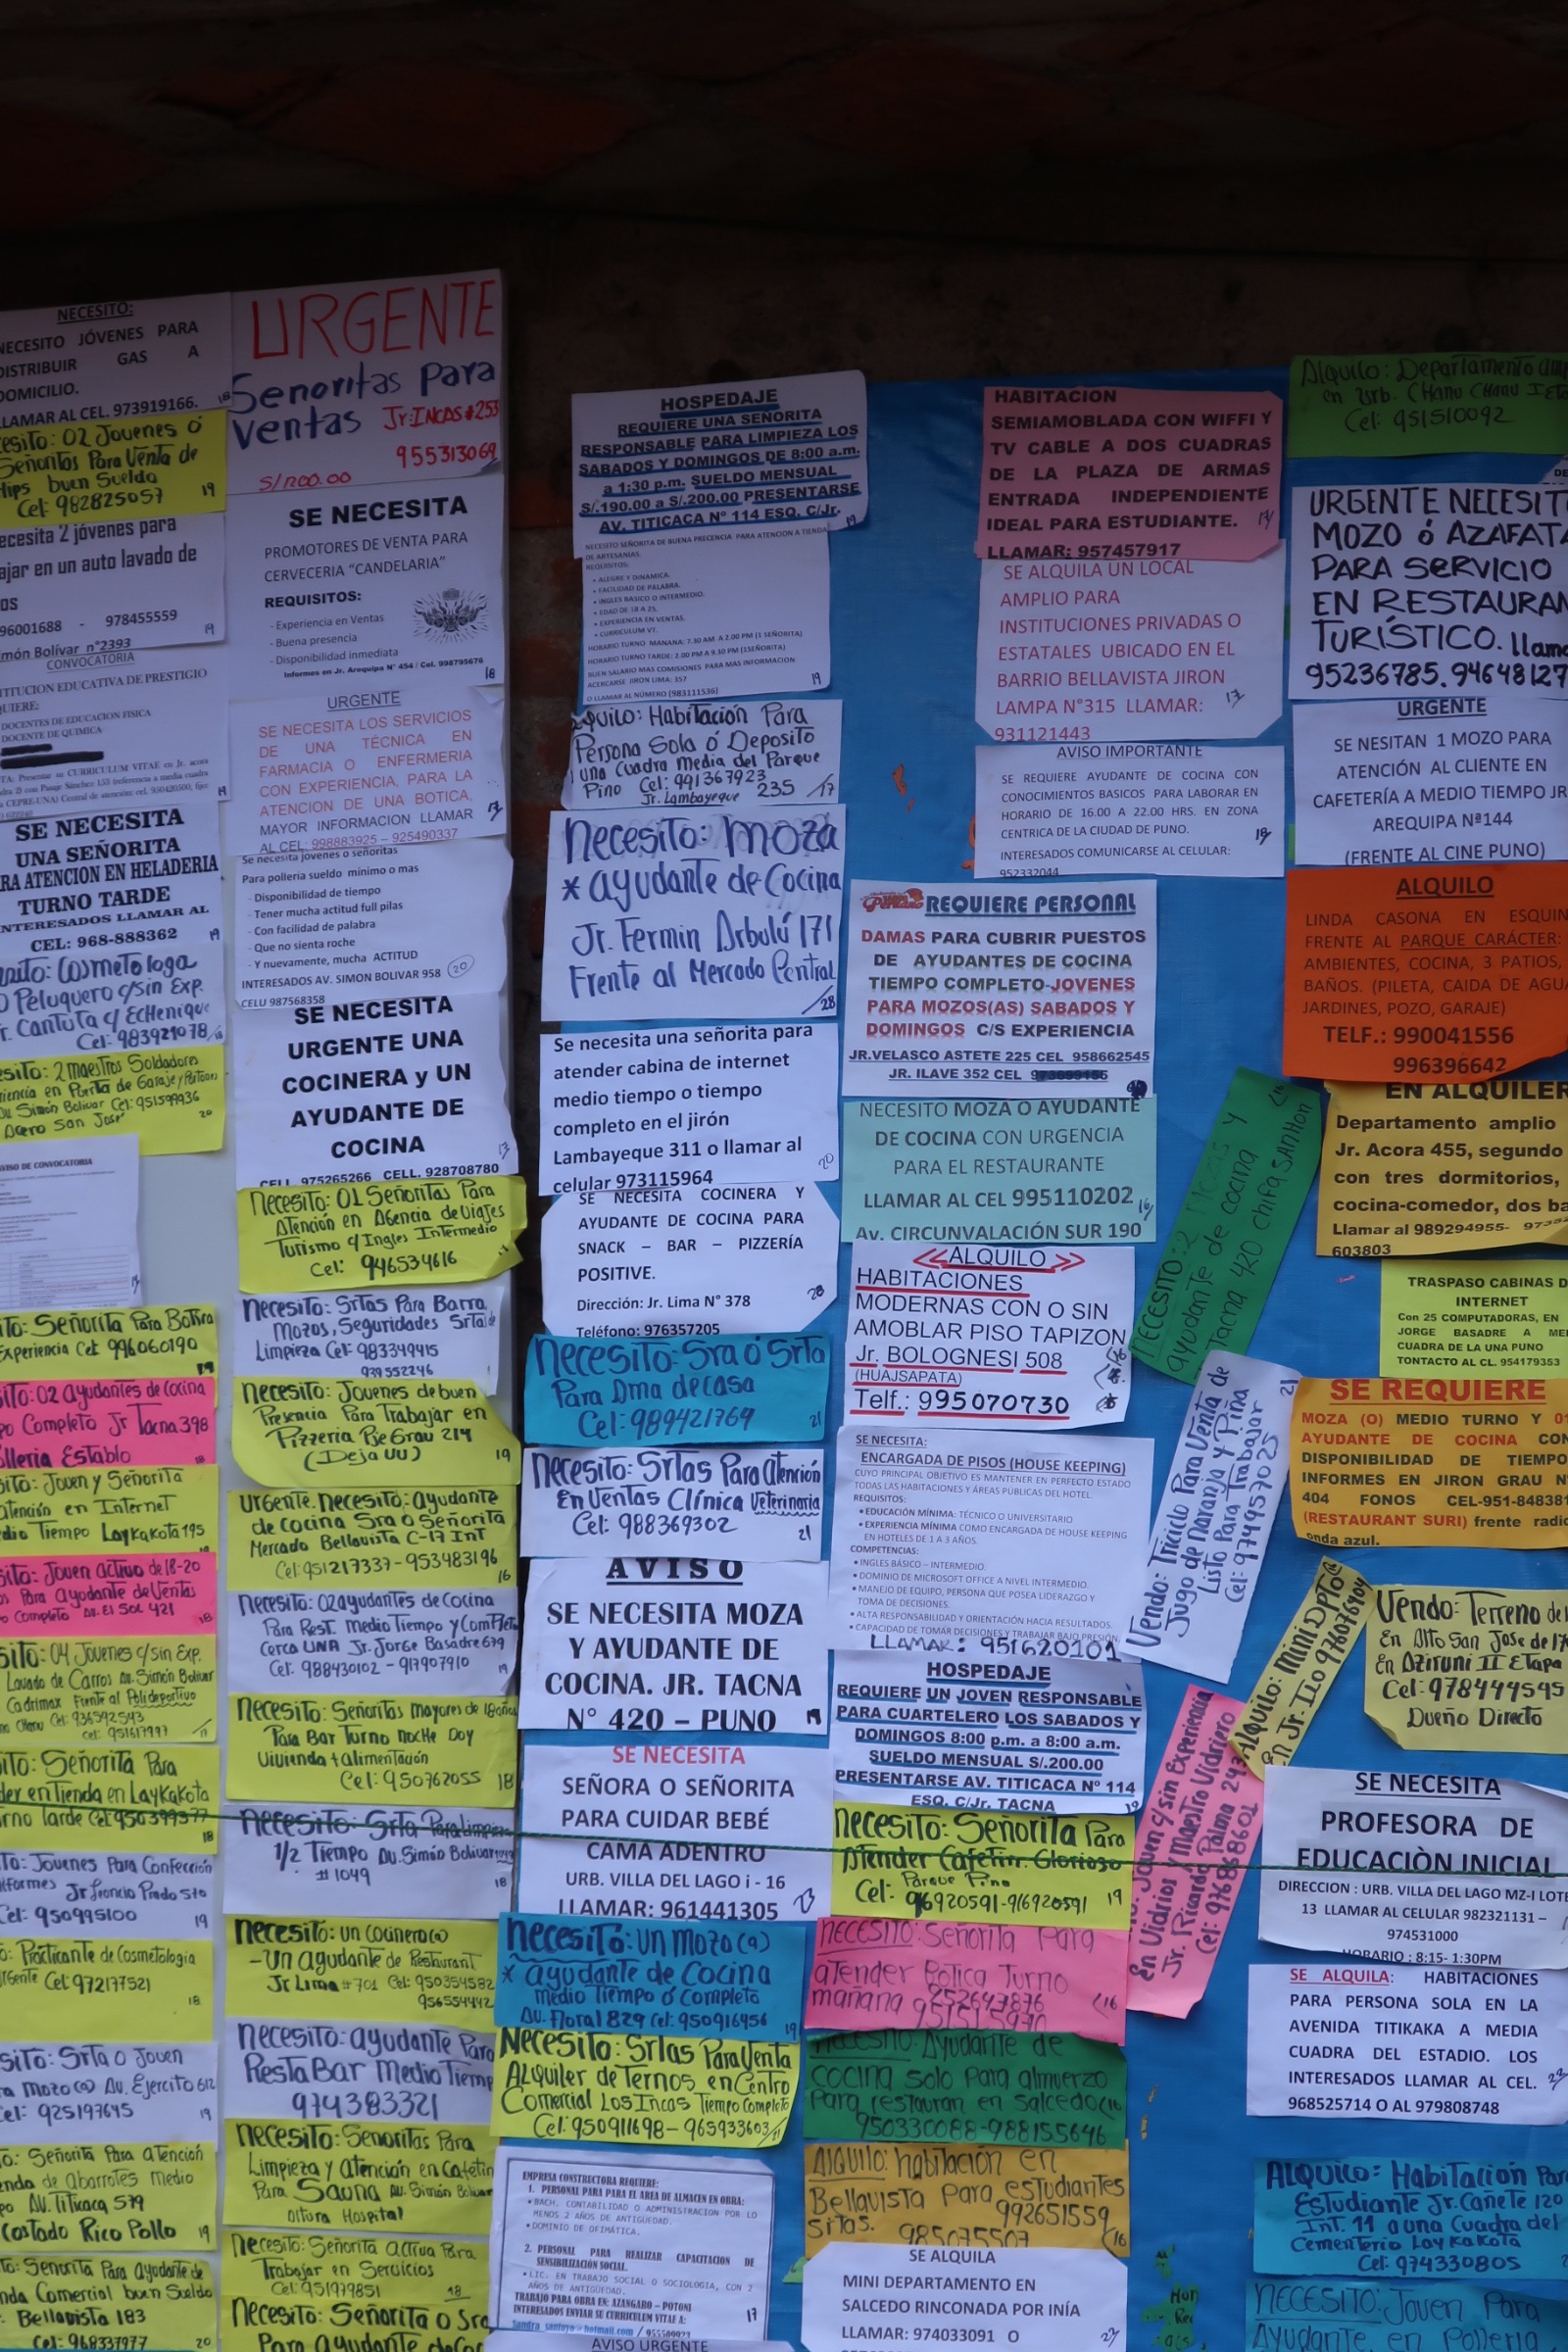 NECESITO:
NECESITO JÓVENES PARA
DISTRIBUIR GAS A
DOMICILIO.
LLAMAR AL CEL. 973919166.
02 Jovenes ó
Señoritas Para Venta de
buen Sueldo
Cel: 982825057
19
2 jóvenes para
en un auto lavado de
- 978455559
Bolívar n°2393
CONVOCATORIA
EDUCATIVA DE PRESTIGIO
DOCENTES DE EDUCACION FISICA
DOCENTE DE QUIMICA
SE NECESITA
UNA SEÑORITA
ATENCION EN HELADERIA
TURNO TARDE
INTERESADOS LLAMAR AL
CEL: 968-888362
Cosmetologa
Peluquero c/sin Exp.
Cantuta c/ Echenique
Cel: 983921078
2 maestros Soldadores
en Puerta de Garaje y Portones
Simón Bolívar Cel: 951599936
Acero San José
AVISO DE CONVOCATORIA
Señorita Para Botica
Experiencia Cel: 996060190
02 ayudantes de cocina
Completo Jr Tacna 398
Establo
Joven y Señorita
atención en Internet
Tiempo Laykakota 195
Joven activo de 18-20
Para ayudante de Ventas
Completo Av. El Sol 421
04 Jovenes c/sin Exp.
Lavado de Carros Av. Simón Bolivar
Cadrimax Frente al Polideportivo
Cel: 936592543
Cel: 951617997
Señorita Para
en Tienda en Laykakota
Tarde Cel: 950399377
18
Jovenes Para Confección
Jr Leoncio Prado 570
Cel: 950995100
19
Practicante de Cosmetologia
Cel: 972177521
18
Srta o Joven
mozo(a) Av. Ejercito 612
Cel: 925197645
19
Señorita Para atención
de abarrotes medio
Av. Titicaca 579
Costado Rico Pollo
19
Señorita Para ayudante de
Comercial buen Sueldo
Bellavista 183
Cel: 968337977
20
URGENTE
Senoritas para
ventas
Jr: INCAS #253
955313069
SE NECESITA
PROMOTORES DE VENTA PARA
CERVECERIA "CANDELARIA"
REQUISITOS:
- Experiencia en Ventas
- Buena presencia
- Disponibilidad inmediata
Informes en Jr. Arequipa N° 454 / Cel. 998795676
18
URGENTE
SE NECESITA LOS SERVICIOS
DE UNA TÉCNICA EN
FARMACIA O ENFERMERIA
CON EXPERIENCIA, PARA LA
ATENCION DE UNA BOTICA,
MAYOR INFORMACION LLAMAR
AL CEL: 998883925 – 925490337
Se necesita jovenes o señoritas
Para polleria sueldo mínimo o mas
- Disponibilidad de tiempo
- Tener mucha actitud full pilas
- Con facilidad de palabra
- Que no sienta roche
- Y nuevamente, mucha ACTITUD
INTERESADOS AV. SIMON BOLIVAR 958
20
CELU 987568358
SE NECESITA
URGENTE UNA
COCINERA y UN
AYUDANTE DE
COCINA
CELL. 975265266 CELL. 928708780
Necesito: 01 Señoritas Para
Atención en Agencia de Viajes
Turismo c/ Ingles Intermedio
Cel: 946534616
Necesito: Srtas Para Barra,
Mozos, Seguridades Srta de
Limpieza Cel: 983349415
939552246
Necesito: Jovenes de buen
Presencia Para Trabajar en
Pizzeria Pje Grau 214
(Deja UU)
19
Urgente. Necesito: ayudante
de Cocina Sra o Señorita
Mercado Bellavista C-17 Int
Cel: 951217337-953483196
16
Necesito: 02 ayudantes de Cocina
Para Rest. Medio Tiempo y Completo
Cerca UNA Jr. Jorge Basadre 679
Cel: 988430102 - 917907910
19
Necesito: Señoritas mayores de 18 años
Para Bar Turno noche Doy
Vivienda + alimentación
Cel: 950762055
18
Necesito: Srta Para Limpieza
1/2 Tiempo Av. Simón Bolivar
# 1049
18
Necesito: un cocinero(a)
- Un ayudante de Restaurant
Jr Lima # 701 Cel: 950354582
956554442
Necesito: ayudante Para
Resta Bar Medio Tiempo
974383321
Necesito: Señoritas Para
Limpieza y atención en Cafetin
Para Sauna Av. Simón Bolivar
altura Hospital
Necesito: Señorita activa Para
Trabajar en Servicios
Cel: 951979851
18
Necesito: Señorita o Sra
Para ayudante de
HOSPEDAJE
REQUIERE UNA SEÑORITA
RESPONSABLE PARA LIMPIEZA LOS
SABADOS Y DOMINGOS DE 8:00 a.m.
a 1:30 p.m. SUELDO MENSUAL
S/.190.00 a S/.200.00 PRESENTARSE
AV. TITICACA Nº 114 ESQ. C/Jr.
NECESITO SEÑORITA DE BUENA PRECENCIA PARA ATENCION A TIENDA
DE ARTESANIAS.
REQUISITOS:
• ALEGRE Y DINAMICA.
• FACILIDAD DE PALABRA.
• INGLES BASICO O INTERMEDIO.
• EDAD DE 18 A 25.
• EXPERIENCIA EN VENTAS.
• CURRICULUM VT.
HORARIO TURNO MANANA: 7.30 AM A 2.00 PM (1 SEÑORITA)
HORARIO TURNO TARDE: 2.00 PM A 9.30 PM (1SEÑORITA)
BUEN SALARIO MAS COMISIONES PARA MAS INFORMACION
ACERCARSE JIRON LIMA: 357
O LLAMAR AL NÚMERO (983111536)
19
Alquilo: Habitación Para
Persona Sola ó Deposito
una Cuadra Media del Parque
Pino Cel: 991367923
Jr. Lambayeque 235
/17
Necesito: Moza
* ayudante de Cocina
Jr. Fermin Arbulú 171
Frente al Mercado Central
/28
Se necesita una señorita para
atender cabina de internet
medio tiempo o tiempo
completo en el jirón
Lambayeque 311 o llamar al
celular 973115964
20
SE NECESITA COCINERA Y
AYUDANTE DE COCINA PARA
SNACK – BAR – PIZZERÍA
POSITIVE.
Dirección: Jr. Lima N° 378
Teléfono: 976357205
Necesito: Sra ó Srta
Para Ama de casa
Cel: 989421769
21
Necesito: Srtas Para atención
En Ventas Clínica Veterinaria
Cel: 988369302
21
AVISO
SE NECESITA MOZA
Y AYUDANTE DE
COCINA. JR. TACNA
N° 420 – PUNO
SE NECESITA
SEÑORA O SEÑORITA
PARA CUIDAR BEBÉ
CAMA ADENTRO
URB. VILLA DEL LAGO i - 16
LLAMAR: 961441305
Necesito: un mozo(a)
* ayudante de Cocina
medio Tiempo o Completo
Av. Floral 829 Cel: 950916456
19
Necesito: Srtas Para Venta
Alquiler de Ternos en Centro
Comercial Los Incas Tiempo Completo
Cel: 950911698 - 965933603
EMPRESA CONSTRUCTORA REQUIERE:
1. PERSONAL PARA PARA EL AREA DE ALMACEN EN OBRA:
• BACH. CONTABILIDAD O ADMINISTRACION POR LO
MENOS 2 AÑOS DE ANTIGÜEDAD.
• DOMINIO DE OFIMÁTICA.
2. PERSONAL PARA REALIZAR CAPACITACION DE
SENSIBILIZACIÓN SOCIAL.
• LIC. EN TRABAJO SOCIAL O SOCIOLOGIA, CON 2
AÑOS DE ANTIGÜEDAD.
TRABAJO PARA OBRA EN: AZANGARO - POTONI
INTERESADOS ENVIAR SU CURRICULUM VITAE A:
17
AVISO URGENTE
REQUIERE PERSONAL
DAMAS PARA CUBRIR PUESTOS
DE AYUDANTES DE COCINA
TIEMPO COMPLETO-JOVENES
PARA MOZOS(AS) SABADOS Y
DOMINGOS C/S EXPERIENCIA
JR.VELASCO ASTETE 225 CEL 958662545
JR. ILAVE 352 CEL
NECESITO MOZA O AYUDANTE
DE COCINA CON URGENCIA
PARA EL RESTAURANTE
LLAMAR AL CEL 995110202
Av. CIRCUNVALACIÓN SUR 190
ALQUILO
HABITACIONES
MODERNAS CON O SIN
AMOBLAR PISO TAPIZON
Jr. BOLOGNESI 508
(HUAJSAPATA)
Telf.: 995070730
SE NECESITA:
ENCARGADA DE PISOS (HOUSE KEEPING)
CUYO PRINCIPAL OBJETIVO ES MANTENER EN PERFECTO ESTADO
TODAS LAS HABITACIONES Y ÁREAS PÚBLICAS DEL HOTEL.
REQUISITOS:
• EDUCACIÓN MÍNIMA: TÉCNICO O UNIVERSITARIO
• EXPERIENCIA MÍNIMA COMO ENCARGADA DE HOUSE KEEPING
EN HOTELES DE 1 A 3 AÑOS.
COMPETENCIAS:
• INGLES BÁSICO – INTERMEDIO.
• DOMINIO DE MICROSOFT OFFICE A NIVEL INTERMEDIO.
• MANEJO DE EQUIPO, PERSONA QUE POSEA LIDERAZGO Y
TOMA DE DECISIONES.
• ALTA RESPONSABILIDAD Y ORIENTACIÓN HACIA RESULTADOS.
• CAPACIDAD DE TOMAR DECISIONES Y TRABAJAR BAJO PRESIÓN
LLAMAR: 951620101
HOSPEDAJE
REQUIERE UN JOVEN RESPONSABLE
PARA CUARTELERO LOS SABADOS Y
DOMINGOS 8:00 p.m. a 8:00 a.m.
SUELDO MENSUAL S/.200.00
PRESENTARSE AV. TITICACA Nº 114
ESQ. C/Jr. TACNA
Necesito: Señorita Para
Atender Cafetin. Glorioso
Parque Pino
Cel: 916920591-916920591
19
NECESITO: Señorita Para
atender Botica Turno
mañana 952643876
NECESITO: Ayudante de
cocina solo para almuerzo
Para restauran en Salcedo
950330088-988155646
Alquilo: habitación en
Bellavista Para estudiantes
Sitas. 992651559
985075507
SE ALQUILA
MINI DEPARTAMENTO EN
SALCEDO RINCONADA POR INÍA
LLAMAR: 974033091 O
HABITACION
SEMIAMOBLADA CON WIFFI Y
TV CABLE A DOS CUADRAS
DE LA PLAZA DE ARMAS
ENTRADA INDEPENDIENTE
IDEAL PARA ESTUDIANTE.
LLAMAR: 957457917
SE ALQUILA UN LOCAL
AMPLIO PARA
INSTITUCIONES PRIVADAS O
ESTATALES UBICADO EN EL
BARRIO BELLAVISTA JIRON
LAMPA N°315 LLAMAR:
931121443
AVISO IMPORTANTE
SE REQUIERE AYUDANTE DE COCINA CON
CONOCIMIENTOS BASICOS PARA LABORAR EN
HORARIO DE 16.00 A 22.00 HRS. EN ZONA
CENTRICA DE LA CIUDAD DE PUNO.
INTERESADOS COMUNICARSE AL CELULAR:
952332044
NECESITO: 2 y
ayudante de cocina
Tacna 420 chifa SAN HON
Vendo: Triciclo Para Venta de
Jugo de Naranja y Piña
Listo Para Trabajar
Cel: 974957025
21
Joven c/sin Experiencia
En Vidrios y Maestro Vidriero
Jr. Ricardo Palma 243
Cel: 976868601
Alquilo: Mini Dpto
en Jr. Ilo 976076494
Alquilo: Departamento
en Urb. Chanu Chanu I Etapa
Cel: 951510092
URGENTE NECESITO
MOZO ó AZAFATA
PARA SERVICIO
EN RESTAURANT
TURÍSTICO. llama
95236785. 94648127
URGENTE
SE NESITAN 1 MOZO PARA
ATENCIÓN AL CLIENTE EN
CAFETERÍA A MEDIO TIEMPO JR
AREQUIPA Nª144
(FRENTE AL CINE PUNO)
ALQUILO
LINDA CASONA EN ESQUIN
FRENTE AL PARQUE CARÁCTER:
AMBIENTES, COCINA, 3 PATIOS,
BAÑOS. (PILETA, CAIDA DE AGUA
JARDINES, POZO, GARAJE)
TELF.: 990041556
996396642
EN ALQUILER
Departamento amplio
Jr. Acora 455, segundo
con tres dormitorios,
cocina-comedor, dos ba
Llamar al 989294955-
603803
TRASPASO CABINAS D
INTERNET
Con 25 COMPUTADORAS, EN
JORGE BASADRE A ME
CUADRA DE LA UNA PUNO
TONTACTO AL CL. 954179353
SE REQUIERE
MOZA (O) MEDIO TURNO Y 01
AYUDANTE DE COCINA CON
DISPONIBILIDAD DE TIEMPO
INFORMES EN JIRON GRAU N°
404 FONOS CEL-951-848381
(RESTAURANT SURI) frente radio
onda azul.
Vendo: Terreno de
En Alto San Jose de
En Aziruni II Etapa
Cel: 978449545
Dueño Directo
SE NECESITA
PROFESORA DE
EDUCACIÒN INICIAL
DIRECCION : URB. VILLA DEL LAGO MZ-I LOTE
13 LLAMAR AL CELULAR 982321131 –
974531000
HORARIO : 8:15- 1:30PM
SE ALQUILA: HABITACIONES
PARA PERSONA SOLA EN LA
AVENIDA TITIKAKA A MEDIA
CUADRA DEL ESTADIO. LOS
INTERESADOS LLAMAR AL CEL.
968525714 O AL 979808748
Alquilo: Habitación Para
Estudiante Jr. Cañete 120
Int. 11 a una Cuadra del
Cementerio Laykakota
Cel: 974330805
NECESITO: Joven Para
Ayudante en Polleria